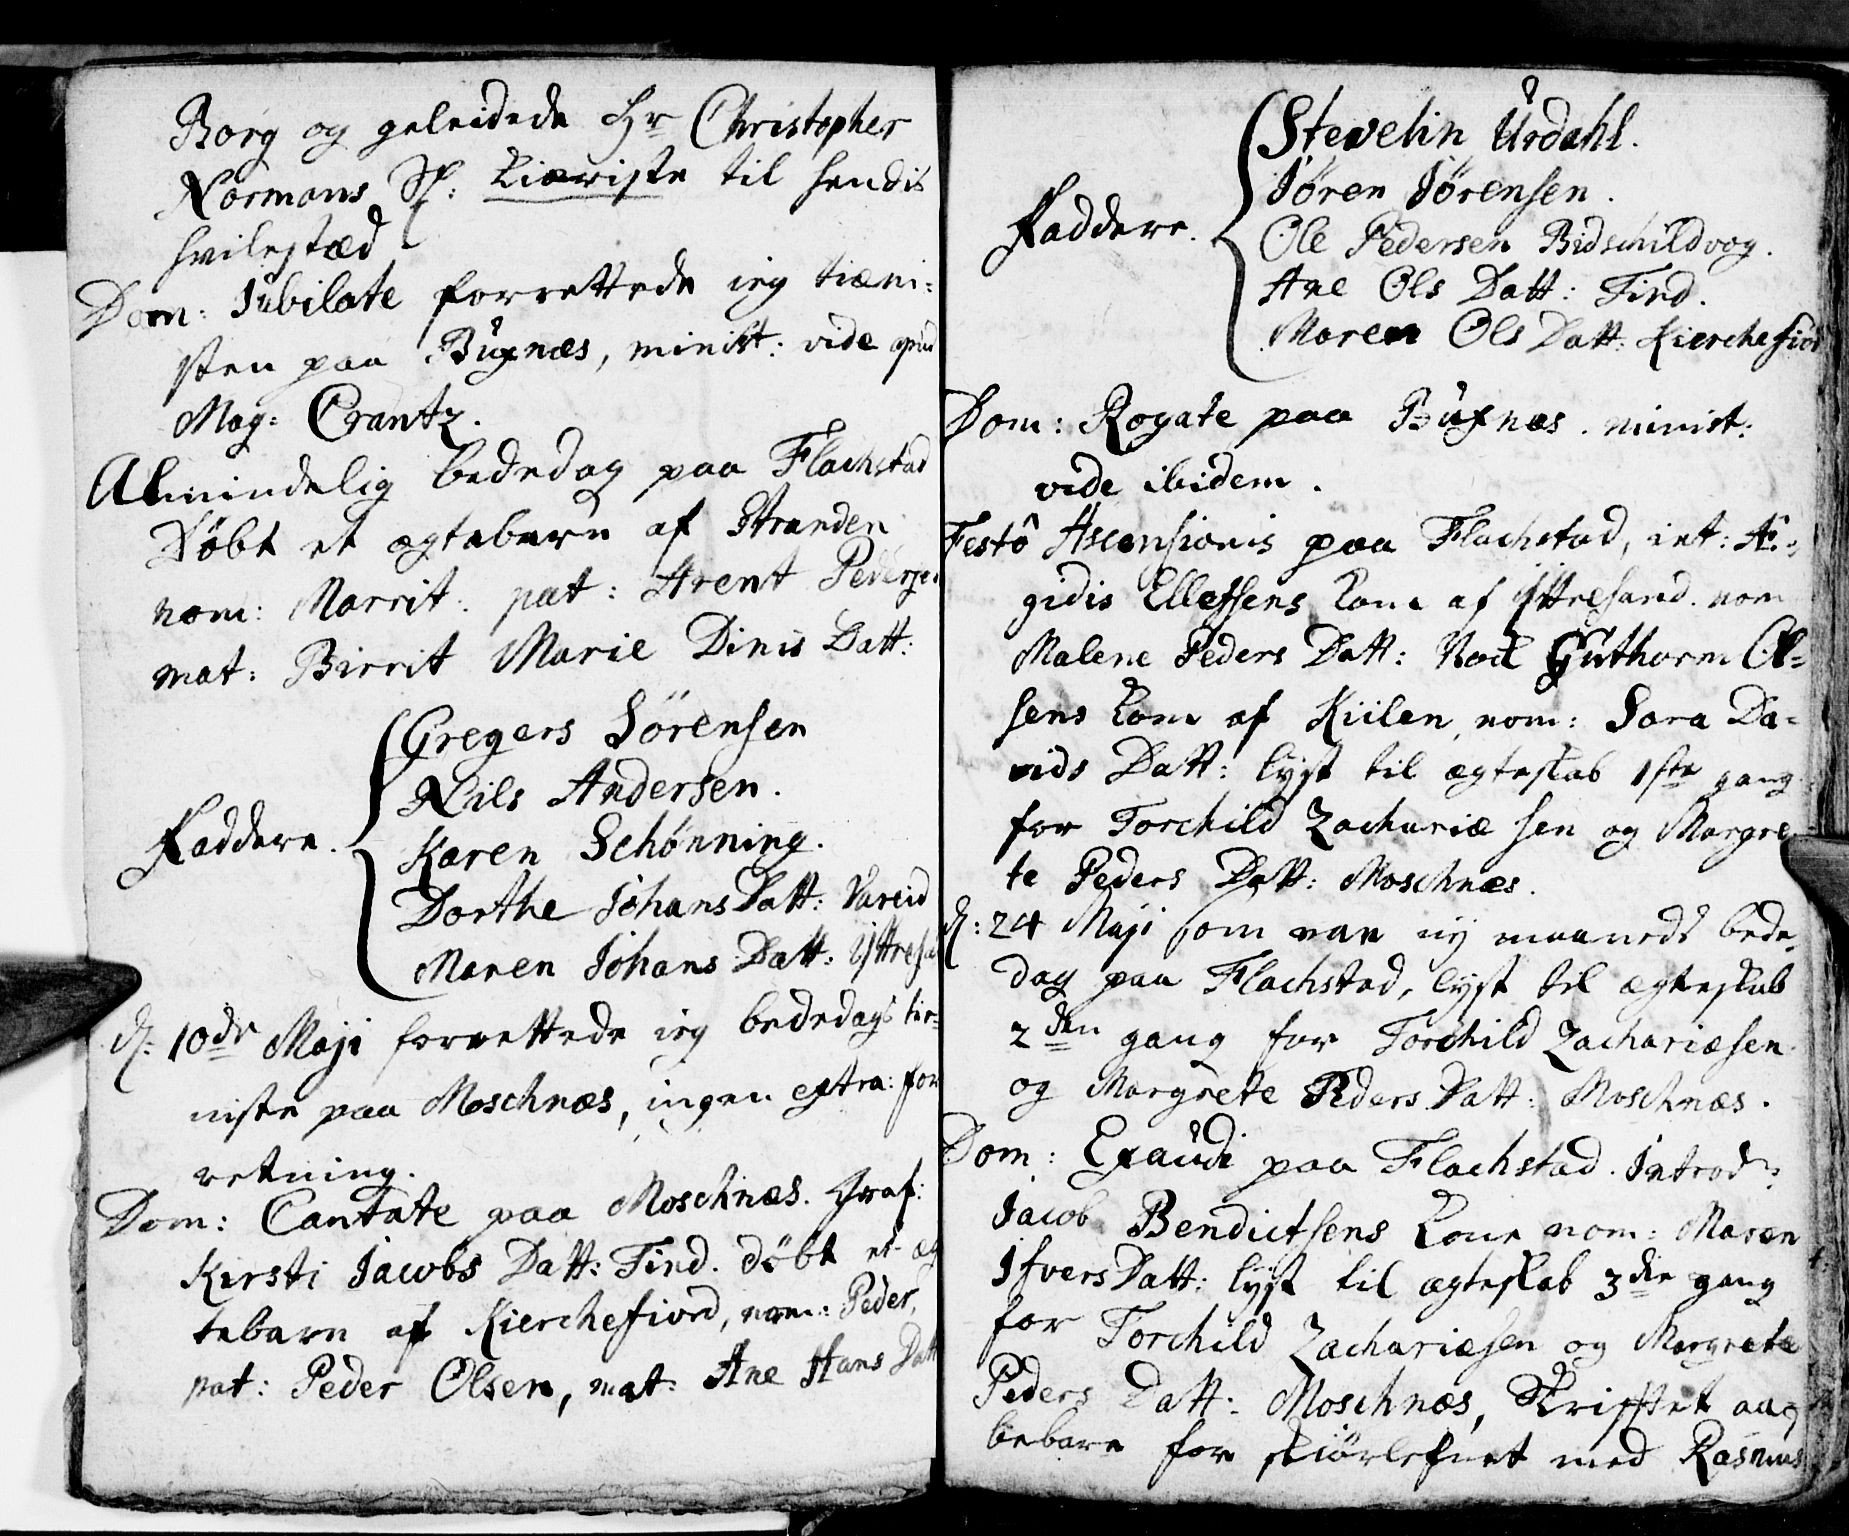 Borg og geleidede Hr Christopher
Normans Sl: Kiæriste til hendis
hvilestæd
Dom: Jubilate forrettede ieg tieni:
sten paa Buxnæs, minist: vide apud
Mag: Crantz.
Almindelig bededag paa Flachstad
Døbt et ægtebarn af Stranden
nom: Marrit. pat: Arent Pedersen
mat: Birrit Marie Dinis Datt:
Gregers Sørensen
Nils Andersen.
Faddere. Karen Schønning.
Dorthe Johans Datt: Vareid
Maren Johans Datt: Yttresa
d: 10de Maji forrettede ieg bededags tie-
niste paa Moschnæs, ingen extra: for
retning.
Dom: Cantate paa Moschnæs. Graf:
Kirsti Jacobs Datt: Find. døbt et æg
tebarn af Kierchefiord, nom: Peder,
pat: Peder Olsen, mat: Ane Hans Datt
Stevelin Urdahl.
Søren Sørensen.
Faddere. Ole Pedersen Bidschildvog.
Ane Ols Datt: Find.
Maren Ols Datt: Kierchefiord
Dom: Rogate paa Buxnæs. minist:
vide ibidem.
Festô Ascensionis paa Flachstad, int: Æ:
gidis Ellefsens Kone af Yttresand. nom
Malene Peders Datt: Noch Guthorm Ol=
sens Kone af Kiilen, nom: Sara Da=
vids Datt: lyst til ægteskab 1ste gang
for Torchild Zachariæ sen og Margre
te Peders Datt: Moschnæs.
d: 24 Maji som var ny maaneds bede,
dag paa Flachstad, lyst til ægteskab
2den gang for Torchild Zachariæsen
og Margrete Peders Datt: Moschnæs.
Dom: Exaudi paa Flachstad. Introd:
Jacob Bendictsens Kone nom: Maren
Ifvers Datt: lyst til ægteskab 3die gang
for Torchild Zachariæsen og Margrete
Peders Datt: Moschnæs, Skrifftet aag
bebare for skiørlefnet med Rasmus